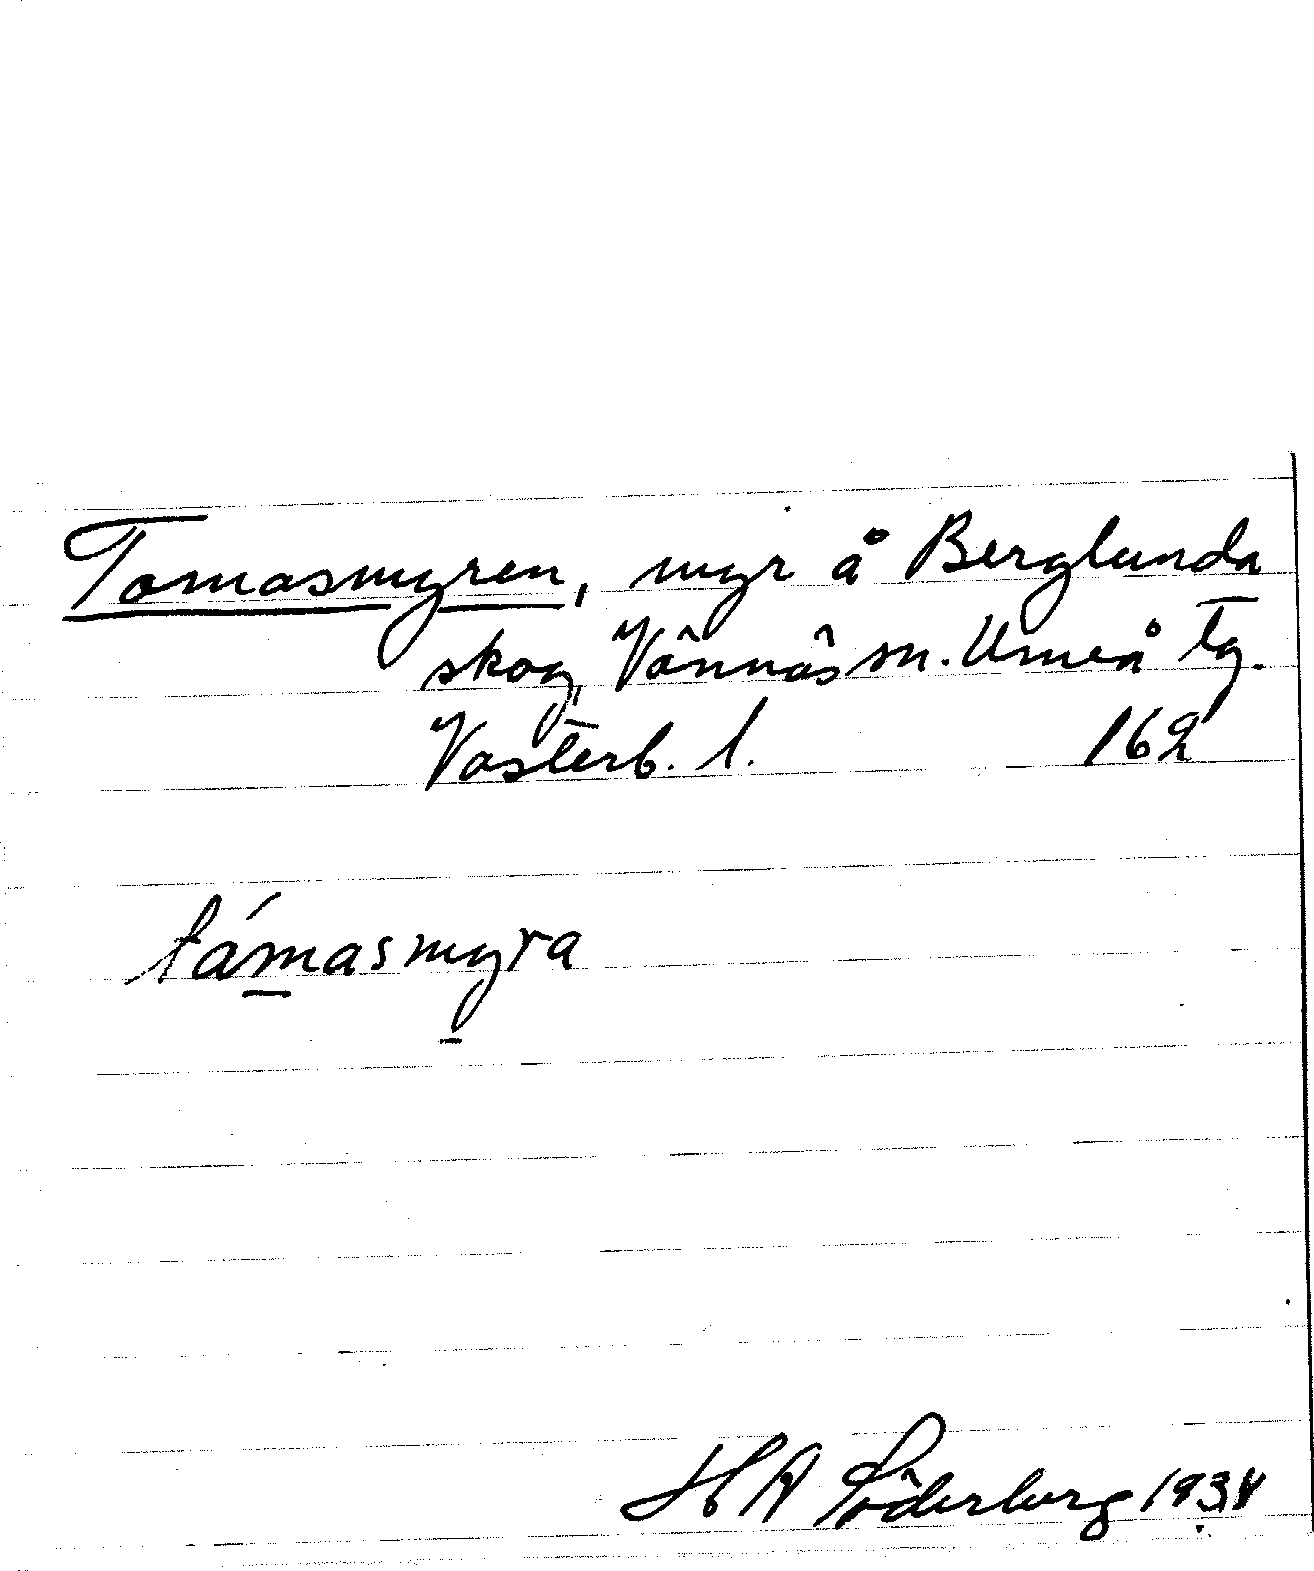 Tomasmyren, myr å Berglunda
skog, Vännäs sn. Umeå tg.
Västerb. l. 162
támasmyra
H A Söderberg 1934